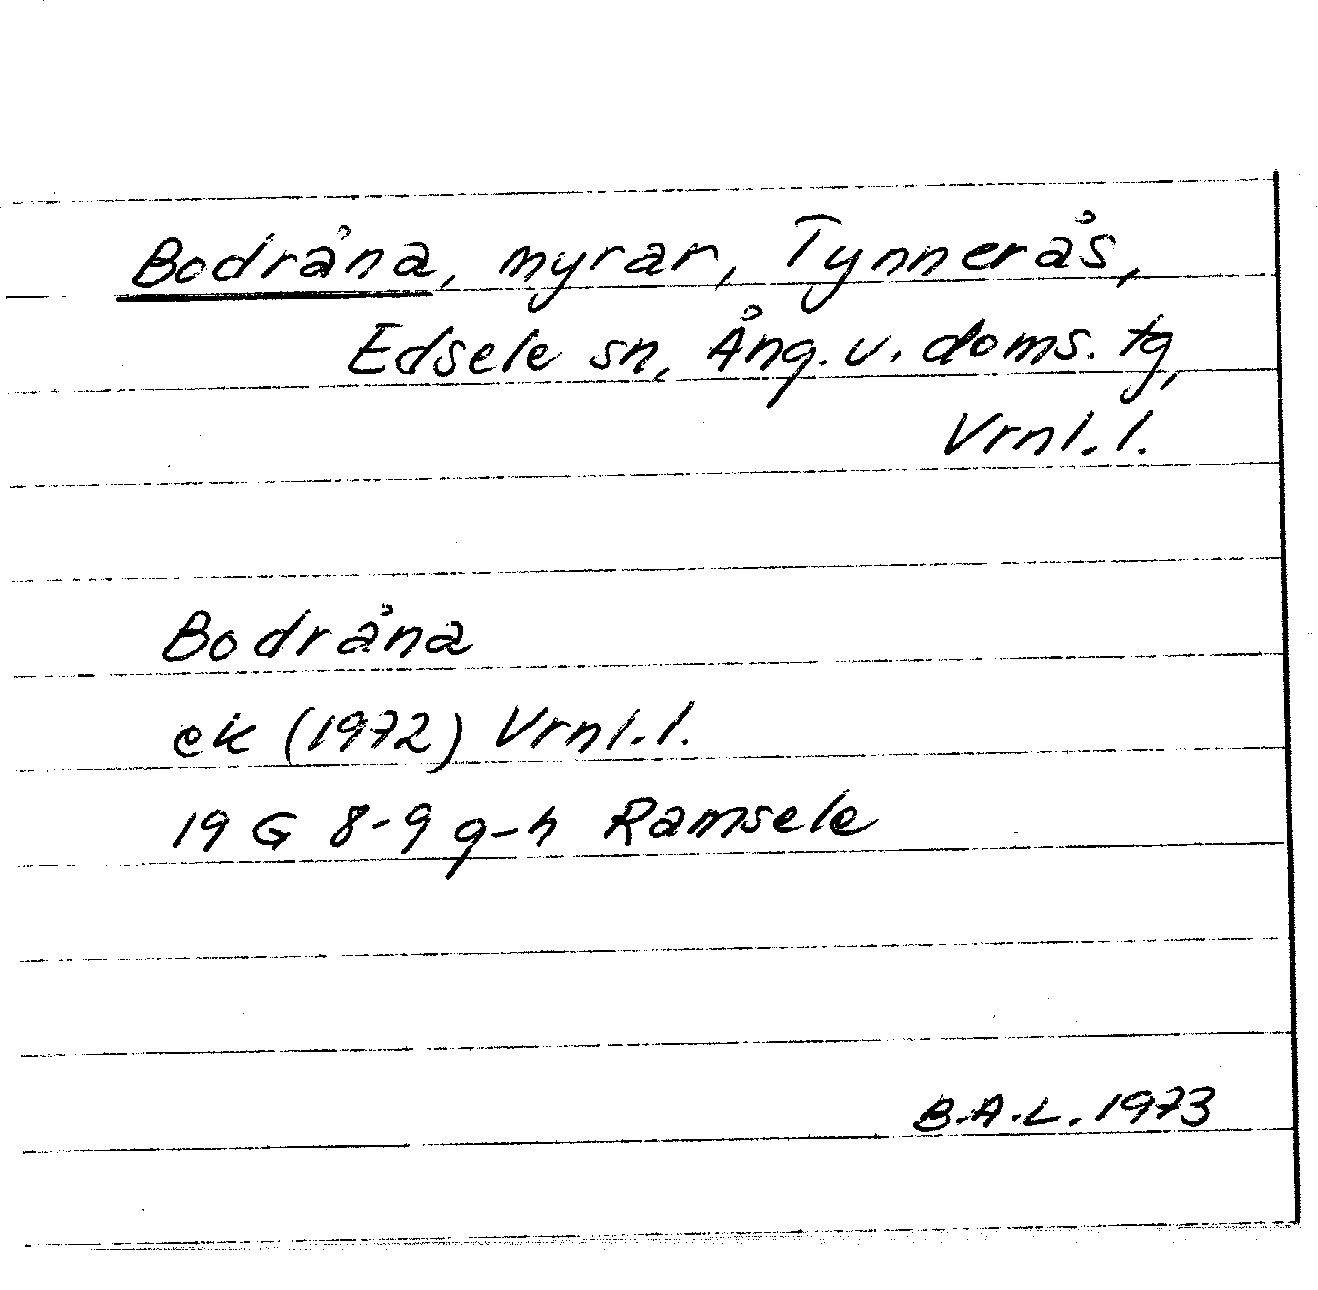 Bodråna, myrar, Tynnerås,
Edsele sn, Ång. v. doms. tg,
Vrnl. l.
Bodråna
ek (1972) Vrnl. l.
19 G 8-9 g-h Ramsele
B.A.L. 1973